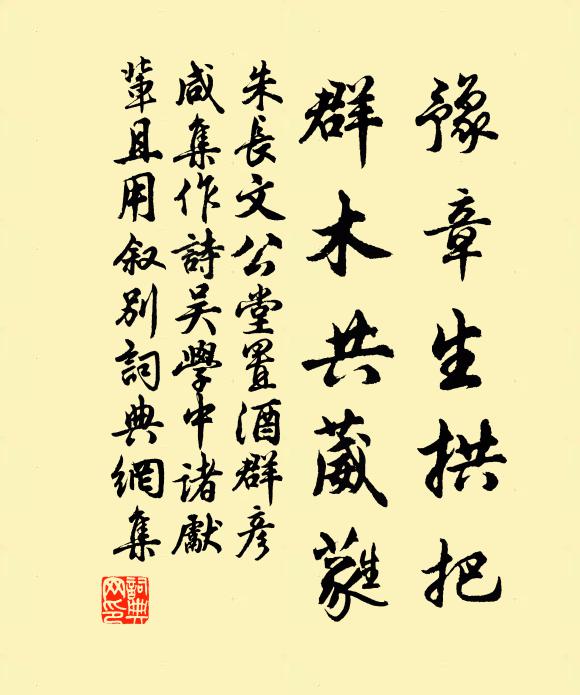 豫章生拱把
群木共葳蕤
朱長文公堂置酒群彥
咸集作詩吴學中諸獻
輩且用叙別詞典網集
詞典
网印